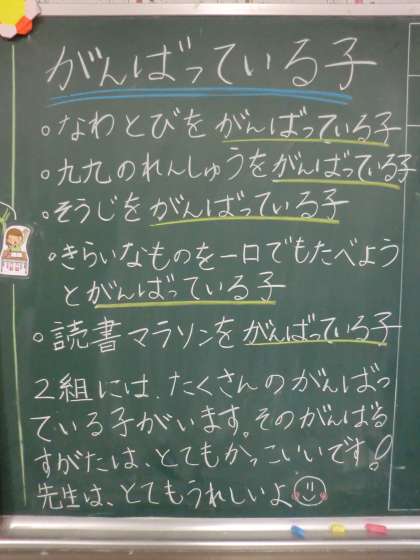 がんばっている子
。なわとびをがんばっている子
。九九のれんしゅうをがんばっている子
。そうじをがんばっている子
。きらいなものを一口でもたべよう
とがんばっている子
。読書マラソンをがんばっている子
2組には、たくさんのがんばっ
ている子がいます。そのがんばる
すがたは、とてもかっこいいです!
先生は、とてもうれしいよ